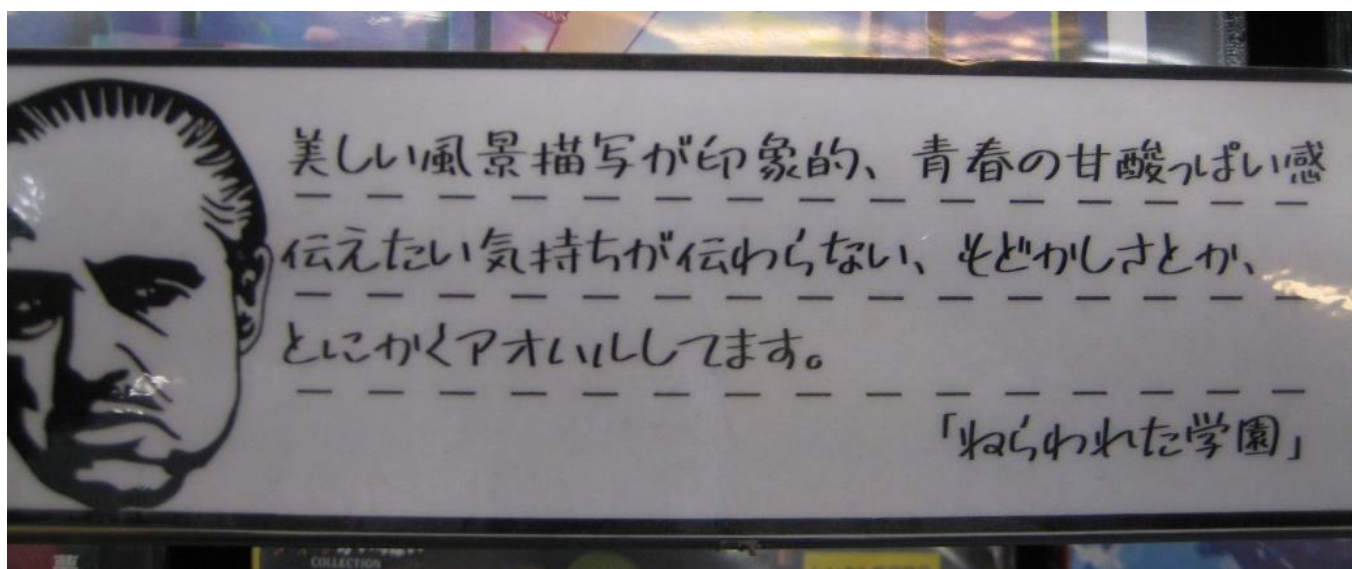 美しい風景描写が印象的、青春の甘酸っぱい感
伝えたい気持ちが伝わらない、もどかしさとか、
とにかくアオハルしてます。
「ねらわれた学園」
COLLECTION